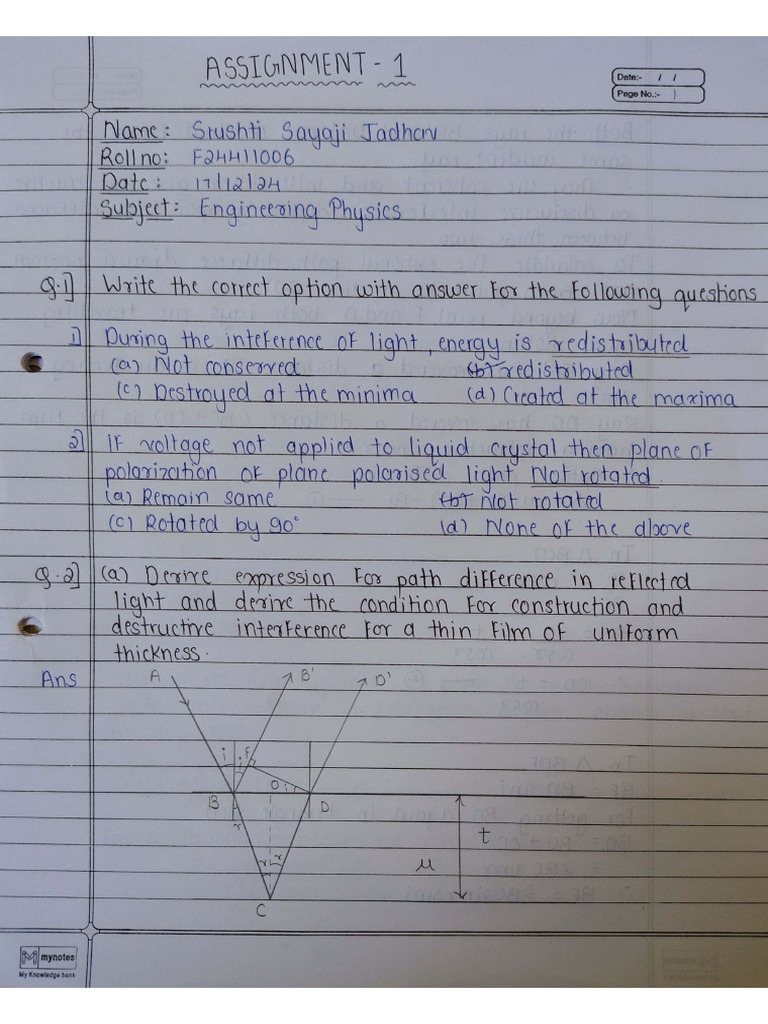 ASSIGNMENT - 1
Date:- / /
Page No.:- 1
Name: Srushti Sayaji Jadhav
Roll no: F24411006
Date: 17/12/24
Subject: Engineering Physics
Q.1] Write the correct option with answer for the following questions
1] During the inteference of light, energy is redistributed
(a) Not conserved (b) redistributed
(c) Destroyed at the minima (d) Created at the maxima
2] If voltage not applied to liquid crystal then plane of
polarization of plane polarised light Not rotated.
(a) Remain same (b) Not rotated
(c) Rotated by 90° (d) None of the above
Q.2] (a) Derive expression for path difference in reflected
light and derive the condition for construction and
destructive interference for a thin film of uniform
thickness.
Ans
A B' D'
i i F
B O i D
r
r r
t
μ
C
mynotes
My Knowledge bank